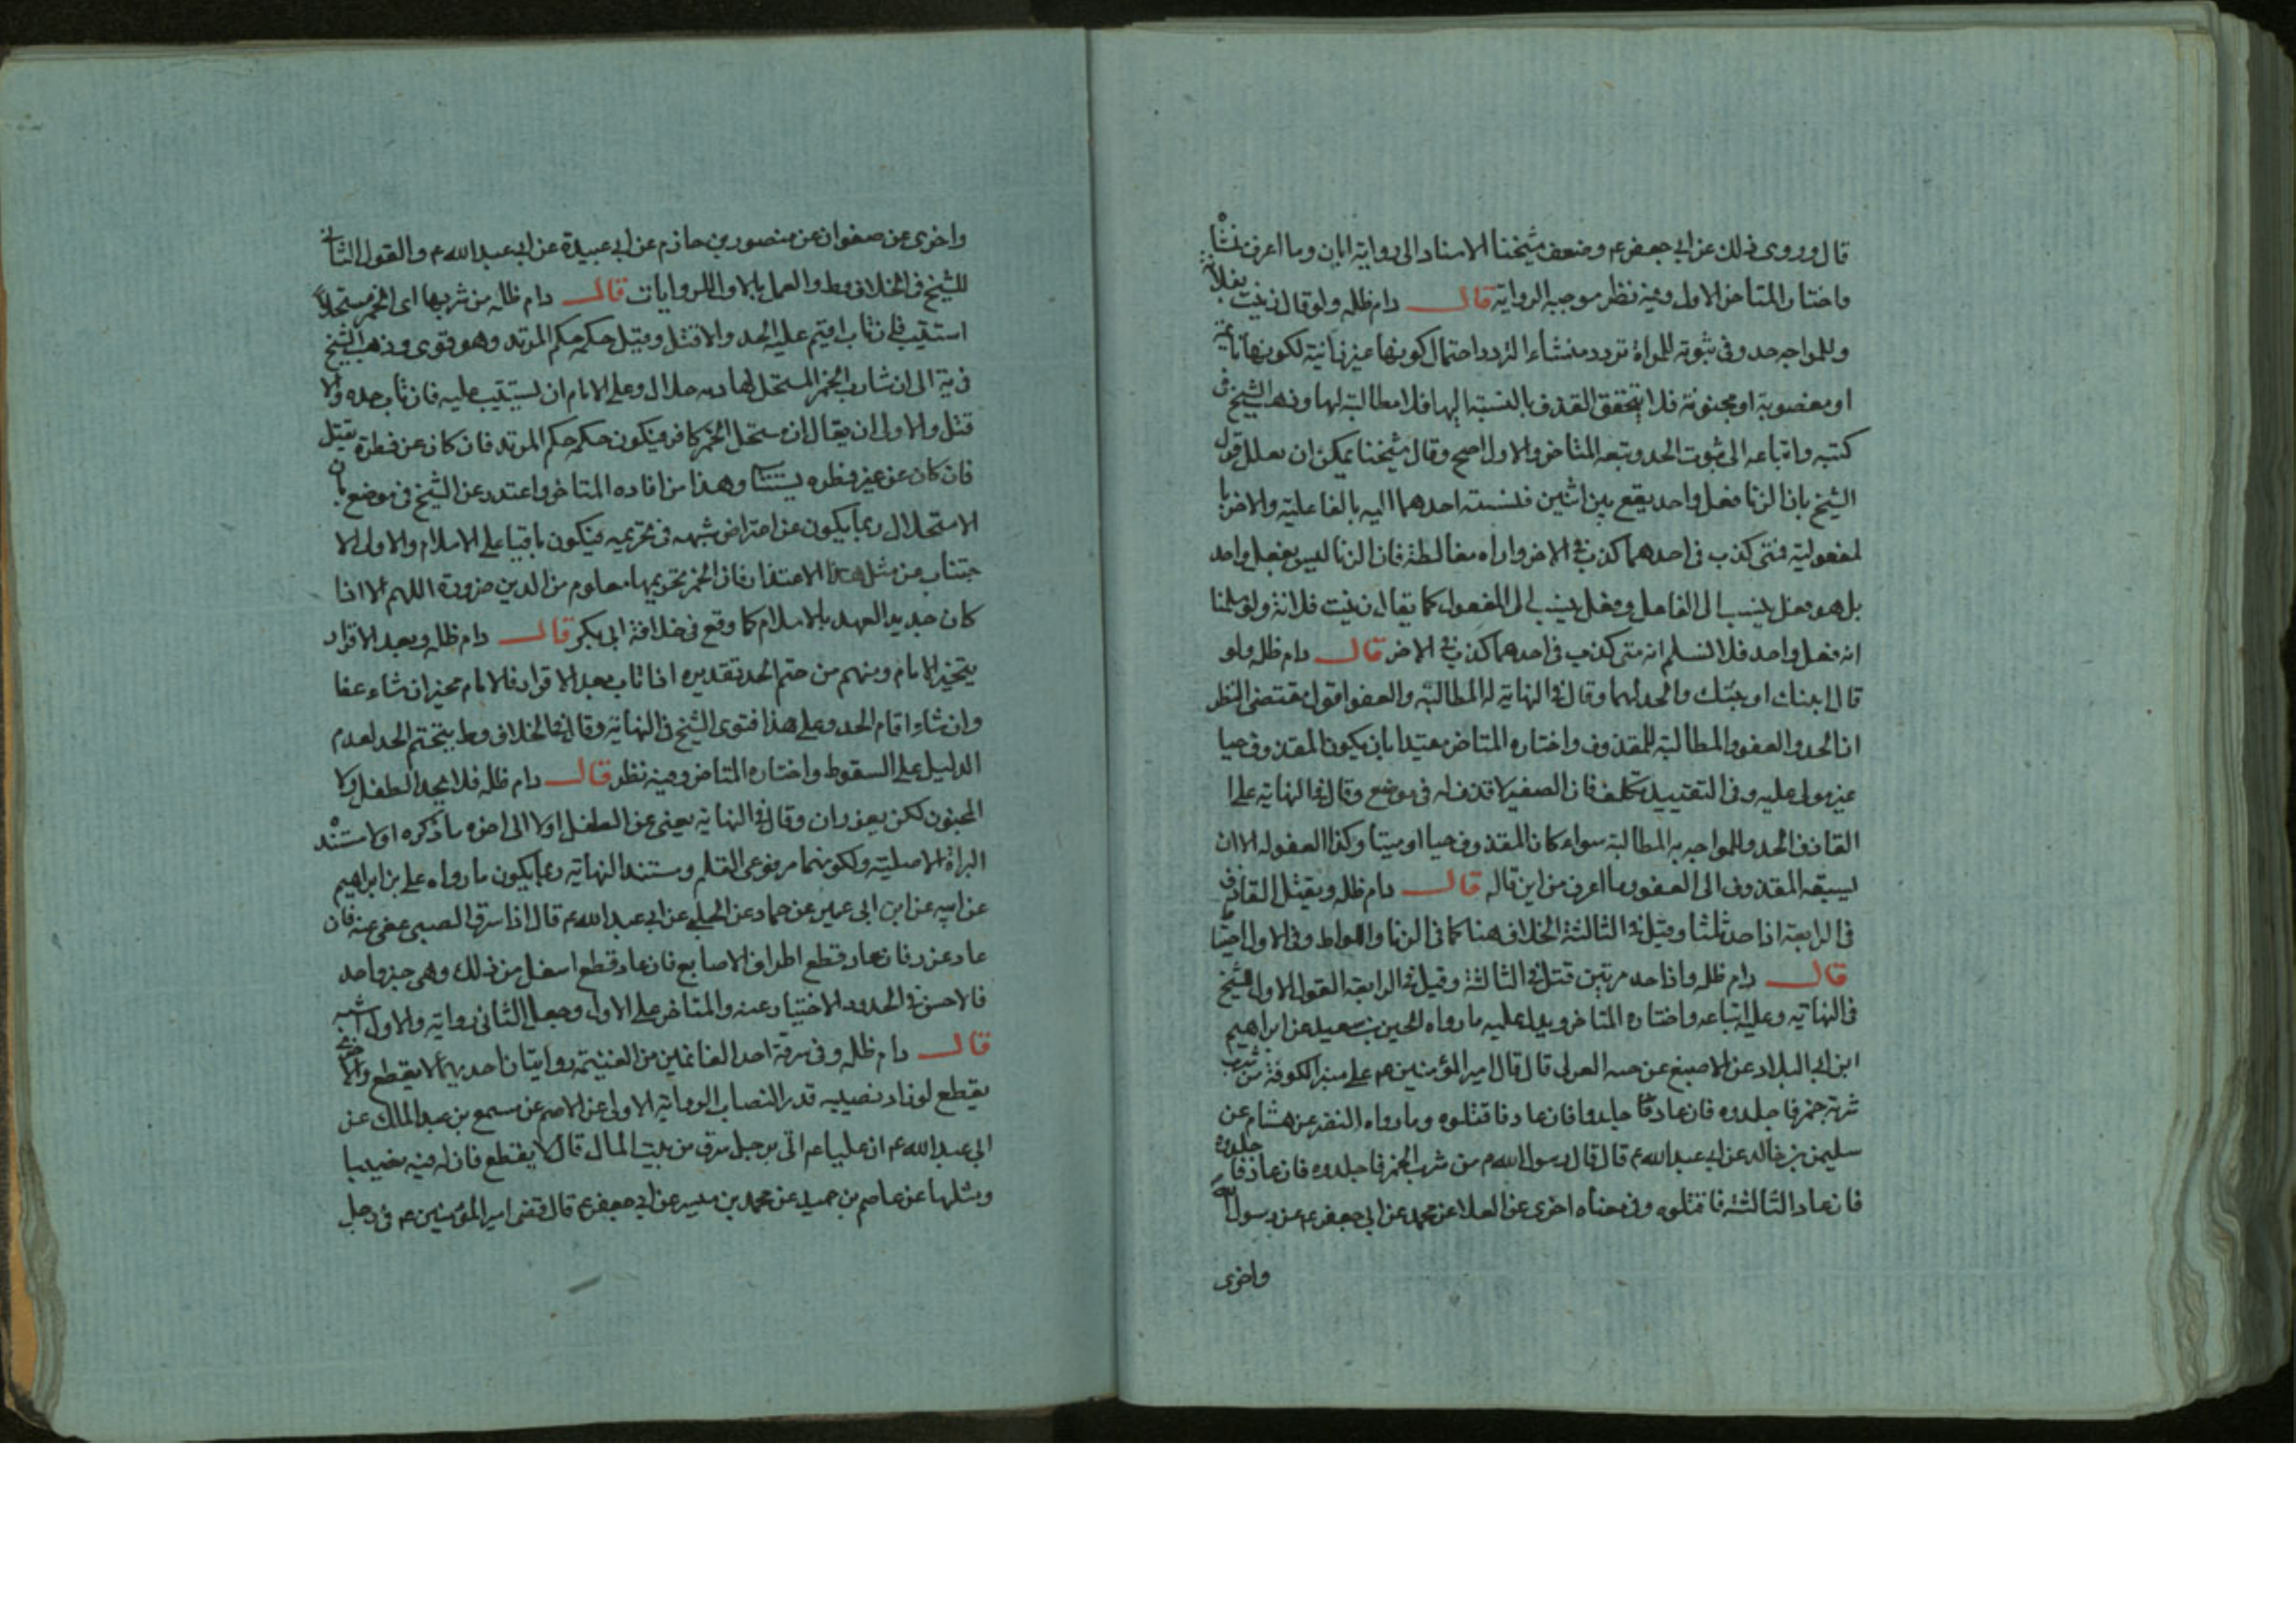 قال وروى ذلك عن ابي جعفر ع وضعف شيخنا الاسناد الى رواية ابان وما اعرف منشأ
واختار المتاخر الاول وفيه نظر موجبه الرواية قال دام ظله ولو قال زنيت بفلانة
وللمواجه حد وفي ثبوته للمراة تردد منشاء التردد احتمال كونها غير زانية لكونها نائمة
او مغصوبة او مجنونة فلا يتحقق القذف بالنسبة اليها فلا مطالبة لها وذهب الشيخ في
كتبه واتباعه الى ثبوت الحد وتبعه المتاخر والاول اصح وقال شيخنا يمكن ان يعلل قول
الشيخ بان الزنا فعل واحد يقع بين اثنين فنسبة احدهما اليه بالفاعلية والاخر با
لمفعولية فمتى كذب في احدهما كذب في الاخر واراه مغالطة فان الزنا ليس بفعل واحد
بل هو فعل ينسب الى الفاعل وفعل ينسب الى المفعول كما يقال زنيت فلانة ولو سلمنا
انه فعل واحد فلا نسلم انه متى كذب في احدهما كذب في الاخر قال دام ظله ولو
قال ابنك او بنتك والحد لهما وقال في النهاية له المطالبة والعفو اقول مقتضى النظر
ان الحد والعفو والمطالبة للمقذوف واختاره المتاخر مقيدا بان يكون المقذوف حيا
غير مولى عليه وفي التقييد تكلف فان الصغير لا قذف له في موضع وقال في النهاية على ا
القاذف الحد وللمواجه به المطالبة سواء كان المقذوف حيا او ميتا وكذا العفو له الا ان
يسبقه المقذوف الى العفو وما اعرف من اين قاله قال دام ظله ويقتل القاذف
في الرابعة اذا حد ثلثا وقيل في الثالثة الخلاف هنا كما في الزنا واللواط وفي الاول احتياط
قال دام ظله واذا حد مرتين قتل في الثالثة وقيل في الرابعة القول الاول للشيخ
في النهاية وعليه اتباعه واختاره المتاخر ويدل عليه ما رواه الحسين بن سعيد عن ابراهيم
ابن ابي البلاد عن الاصبغ عن حبه العرني قال قال امير المؤمنين ع على منبر الكوفة من شرب
شربة خمر فاجلدوه فان عاد فا جلدوا فان عاد فاقتلوه وما رواه النضر عن هشام عن
سليمن بن خالد عن ابي عبد الله ع قال قال رسول الله ص من شرب الخمر فاجلدوه فان عاد فا جلدوه
فان عاد الثالثة فاقتلوه وفي معناه اخرى عن العلا عن محمد عن ابي جعفر ع عن رسول الله
واخرى
واخرى عن صفوان عن منصور بن حازم عن ابي عبيدة عن ابي عبد الله ع والقول الثاني
للشيخ في الخلاف وط والعمل بالاول للروايات قال دام ظله من شربها اى الخمر مستحلا
استتيب فان تاب اقيم عليه الحد والا قتل وقيل حكمه حكم المرتد وهو قوي وذهب الشيخ
في ية الى ان شارب الخمر المستحل لها دمه حلال وعلى الامام ان يستتيب عليه فان تاب حده والا
قتل والاولى ان يقال ان مستحل الخمر كافر فيكون حكمه حكم المرتد فان كان عن فطرة يقتل
فان كان عن غير فطره يستتاب وهذا من افاده المتاخر واعتذر عن الشيخ في موضع بان
الاستحلال ربما يكون عن اعتراض شبهه في تحريمه فيكون باقيا على الاسلام والاولى الا
جتناب من مثل هذا الاعتذار فان الخمر تحريمها معلوم من الدين ضرورة اللهم الا اذا
كان جديد العهد بالاسلام كما وقع في خلافة ابي بكر قال دام ظله وبعد الاقرار
يتخير الامام ومنهم من حتم الحد تقديره اذا تاب بعد الاقرار فالامام مخير ان شاء عفا
وان شاء اقام الحد وعلى هذا فتوى الشيخ في النهاية وقال في الخلاف وط يتحتم الحد لعدم
الدليل على السقوط واختاره المتاخر وفيه نظر قال دام ظله فلا يحد الطفل ولا
المجنون لكن يعزران وقال في النهاية يعفى عن الطفل اولا الى اخره ما ذكره اولا مستند
البراة الاصلية ولكونهما مرفوعى القلم ومستند النهاية ربما يكون ما رواه علي بن ابراهيم
عن ابيه عن ابن ابي عمير عن حماد عن الحلبي عن ابي عبد الله ع قال اذا سرق الصبي عفى عنه فان
عاد عزر فان عاد قطع اطراف الاصابع فان عاد قطع اسفل من ذلك وهى خبر واحد
فالاحسن في الحدود الاختيار عنه والمتاخر على الاول وجعل الثاني رواية والاول اشبه
قال دام ظله وفي سرقة احد الغانمين من الغنيمة روايتان احديهما لا يقطع والاخرى
يقطع لو زاد نصيبه قدر النصاب الرواية الاولى عن الاصم عن مسمع بن عبد الملك عن
ابي عبد الله ع ان عليا ع اتى برجل سرق من بيت المال قال لا يقطع فان له فيه نصيبا
ومثلها عن عاصم بن حميد عن محمد بن قيس عن ابي جعفر ع قال قضى امير المؤمنين ع في رجل